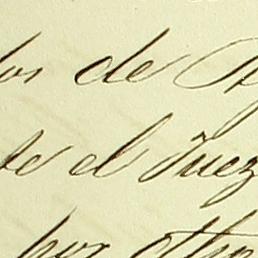 los de
te el Juez
por otro